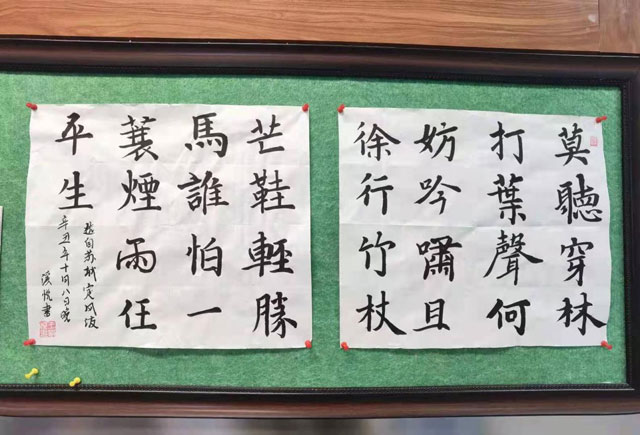 莫聽穿林
打葉聲何
妨吟嘯且
徐行竹杖
芒鞋輕勝
馬誰怕一
蓑煙雨任
平生
选自苏轼定风波
辛丑年十月八日
溪悦書